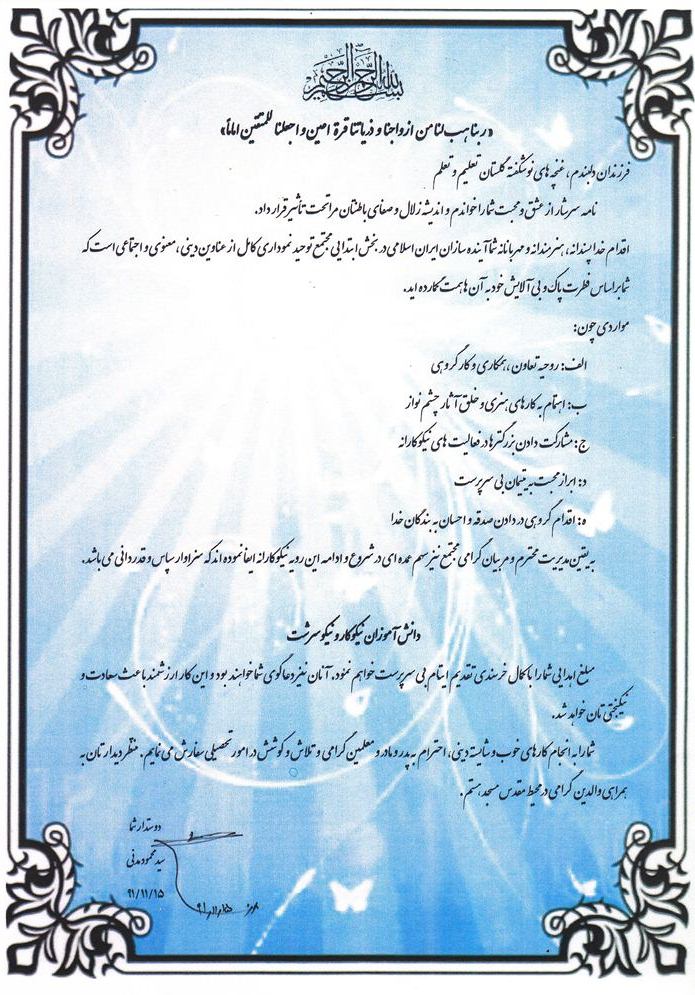 بسم الله الرحمن الرحیم
«ربنا هب لنا من ازواجنا و ذریاتنا قرة اعین و اجعلنا للمتقین اماماً»
فرزندان دلبندم، غنچه های نوشکفته گلستان تعلیم و تعلم
نامه سرشار از عشق و محبت شما را خواندم و اندیشه زلال و صفای باطنتان مرا تحت تأثیر قرار داد.
اقدام خداپسندانه، هنرمندانه و مهربانانه شما آینده سازان ایران اسلامی در بخش ابتدایی مجتمع توحید نموداری کامل از عناوین دینی، معنوی و اجتماعی است که
شما براساس فطرت پاک و بی آلایش خود به آن همت گمارده اید.
مواردی چون:
الف: روحیه تعاون، همکاری و کار گروهی
ب: اهتمام به کارهای هنری و خلق آثار چشم نواز
ج: مشارکت دادن بزرگترها در فعالیت های نیکوکارانه
د: ابراز محبت به یتیمان بی سرپرست
ه: اقدام گروهی در دادن صدقه و احسان به بندگان خدا
به یقین مدیریت محترم و مربیان گرامی مجتمع نیز سهم عمده ای در شروع و ادامه این رویه نیکوکارانه ایفا نموده اند که سزاوار سپاس و قدردانی می باشد.
دانش آموزان نیکوکار و نیکو سرشت
مبلغ اهدایی شما را با کمال خرسندی تقدیم ایتام بی سرپرست خواهم نمود. آنان نیز دعاگوی شما خواهند بود و این کار ارزشمند باعث سعادت و
نیکبختی تان خواهد شد.
شما را به انجام کارهای خوب و شایسته دینی، احترام به پدر و مادر و معلمین گرامی و تلاش و کوشش در امور تحصیلی سفارش می نمایم. منتظر دیدارتان به
همراهی والدین گرامی در محیط مقدس مسجد هستم.
دوستدار شما
سید محمود مدنی
۹۱/۱۱/۱۵